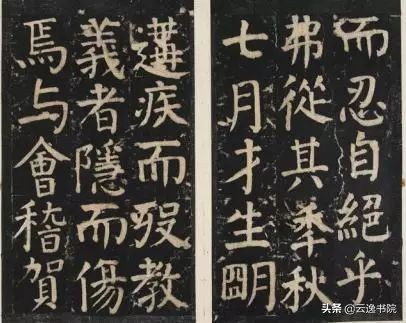 而忍自絕乎
弗從其秊秋
七月才生朙
遘疾而歿教
義者隱而傷
焉与會稽賀
头条 @云逸书院